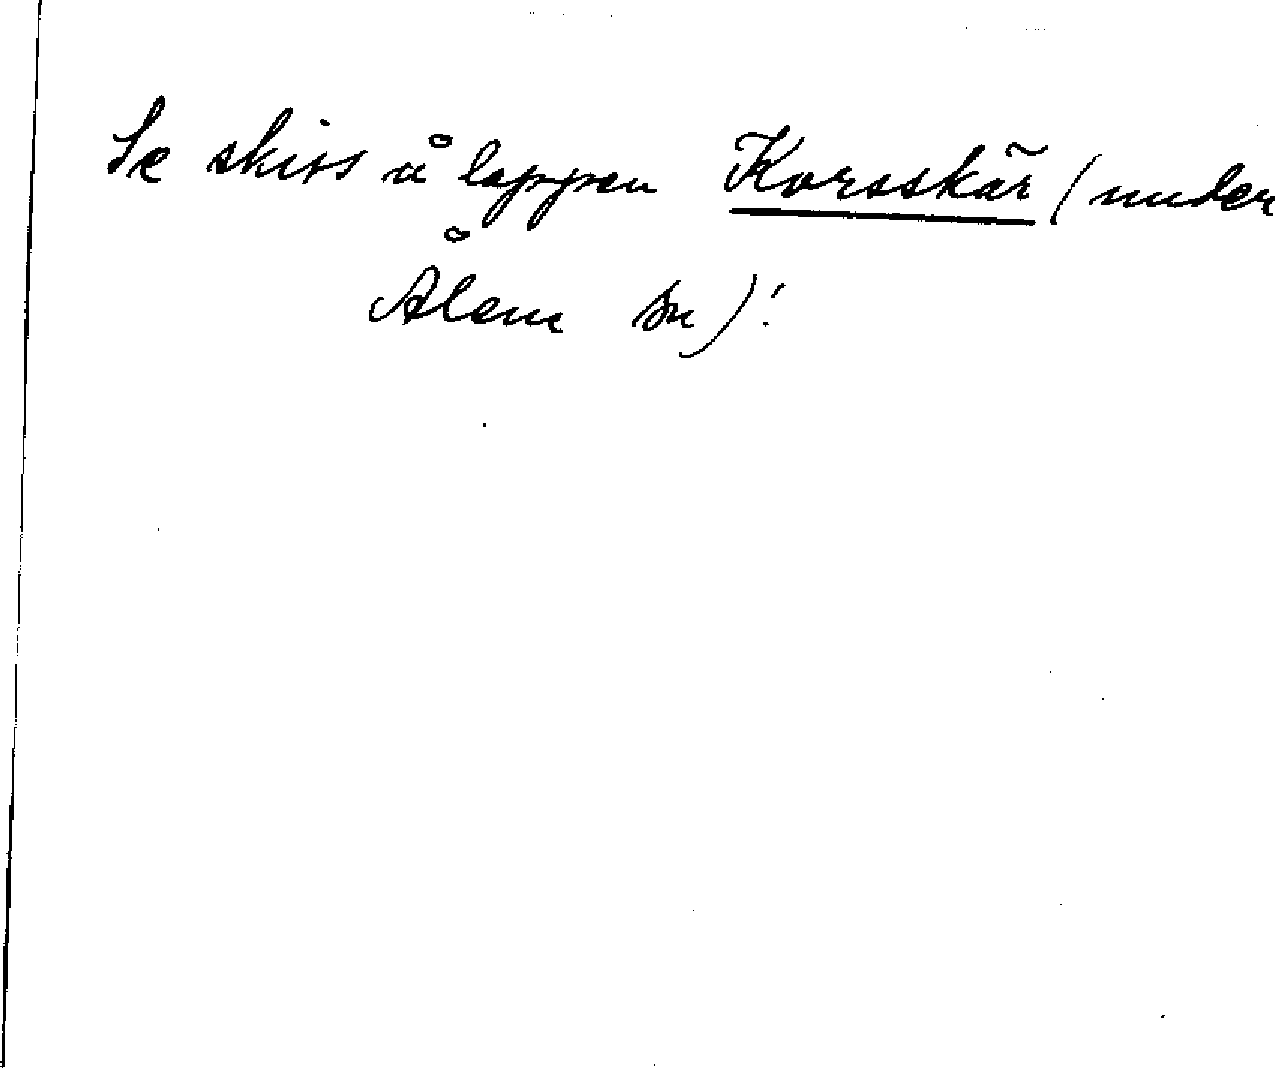 Se skiss å lappen Korsskär (under
Ålem sn)!